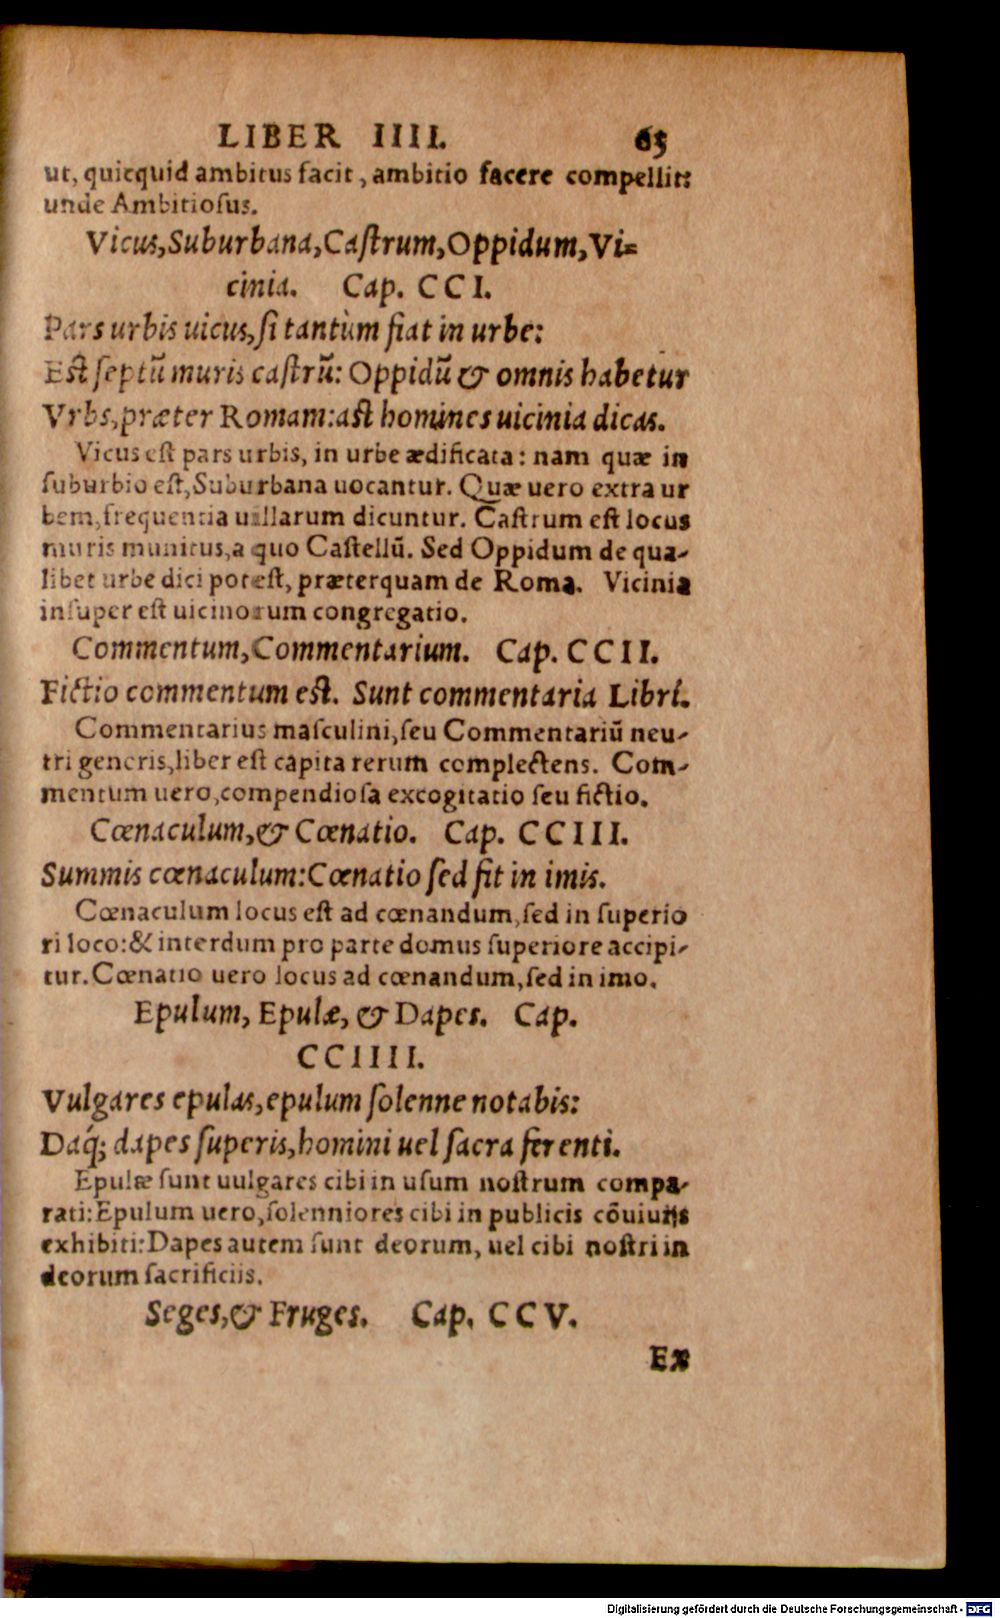 LIBER IIII. 65
ut, quicquid ambitus facit, ambitio facere compellit:
unde Ambitiosus.
Vicus, Suburbana, Castrum, Oppidum, Vi=
cinia. Cap. CCI.
Pars urbis uicus, si tantùm fiat in urbe:
Est septũ muris castrũ: Oppidũ & omnis habetur
Vrbs, præter Romam: ast homines uicinia dicas.
Vicus est pars urbis, in urbe ædificata: nam quæ in
suburbio est, Suburbana uocantur. Quæ uero extra ur
bem, frequentia uillarum dicuntur. Castrum est locus
muris munitus, a quo Castellũ. Sed Oppidum de qua-
libet urbe dici potest, præterquam de Roma. Vicinia
insuper est uicinorum congregatio.
Commentum, Commentarium. Cap. CCII.
Fictio commentum est. Sunt commentaria Libri.
Commentarius masculini, seu Commentariũ neu-
tri generis, liber est capita rerum complectens. Com-
mentum uero, compendiosa excogitatio seu fictio.
Cœnaculum, & Cœnatio. Cap. CCIII.
Summis cœnaculum: Cœnatio sed fit in imis.
Cœnaculum locus est ad cœnandum, sed in superio
ri loco: & interdum pro parte domus superiore accipi-
tur. Cœnatio uero locus ad cœnandum, sed in imo.
Epulum, Epulæ, & Dapes. Cap.
CCIIII.
Vulgares epulas, epulum solenne notabis:
Daq́; dapes superis, homini uel sacra ferenti.
Epulæ sunt uulgares cibi in usum nostrum compa-
rati: Epulum uero, solenniores cibi in publicis cõuiuijs
exhibiti: Dapes autem sunt deorum, uel cibi nostri in
deorum sacrificiis.
Seges, & Fruges. Cap. CCV.
Ex
Digitalisierung gefördert durch die Deutsche Forschungsgemeinschaft - DFG